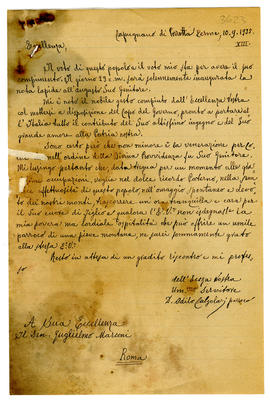 Capugnano di Porretta Terme, 10.9.1935.
XIII.
3623
Eccellenza,
Il voto di questo popolo e il voto mio sta per aver il suo
compimento. Il giorno 29 c. m. sarà solennemente inaugurata la
nota lapide all'augusto Suo Genitore.
Mi è noto il nobile gesto compiuto dall'Eccellenza Vostra
col mettersi a disposizione del Capo del Governo, pronto a portarsi
l'Italia tutto il contributo del Suo altissimo ingegno e del Suo
grande amore alla Patria nostra.
Sono certo però che non minore è la venerazione per Co
nell'ordine della Divina Provvidenza fu Suo Genitore.
Mi lusingo pertanto che, data tregua per un momento alla
occupazioni, voglia nel dolce ricordo Paterno, nella
affettuosità di questo popolo nell'omaggio spontaneo e devo
to dei nostri monti, trascorrere un'ora tranquilla e cara per
il Suo cuore di figlio e qualora l'E. V. non isdegnasse la
mia povera ma cordiale ospitalità che può offrire un umile
parroco di una pieve montana, ne sarei sommamente grato
alla stessa E. V.
Resto in attesa di un gradito riscontro e mi profes
so
dell'Eccza Vostra
Um.mo Servitore
D. Adilo Calzolari parroco
A Sua Eccellenza
Il Sen. Guglielmo Marconi
Roma